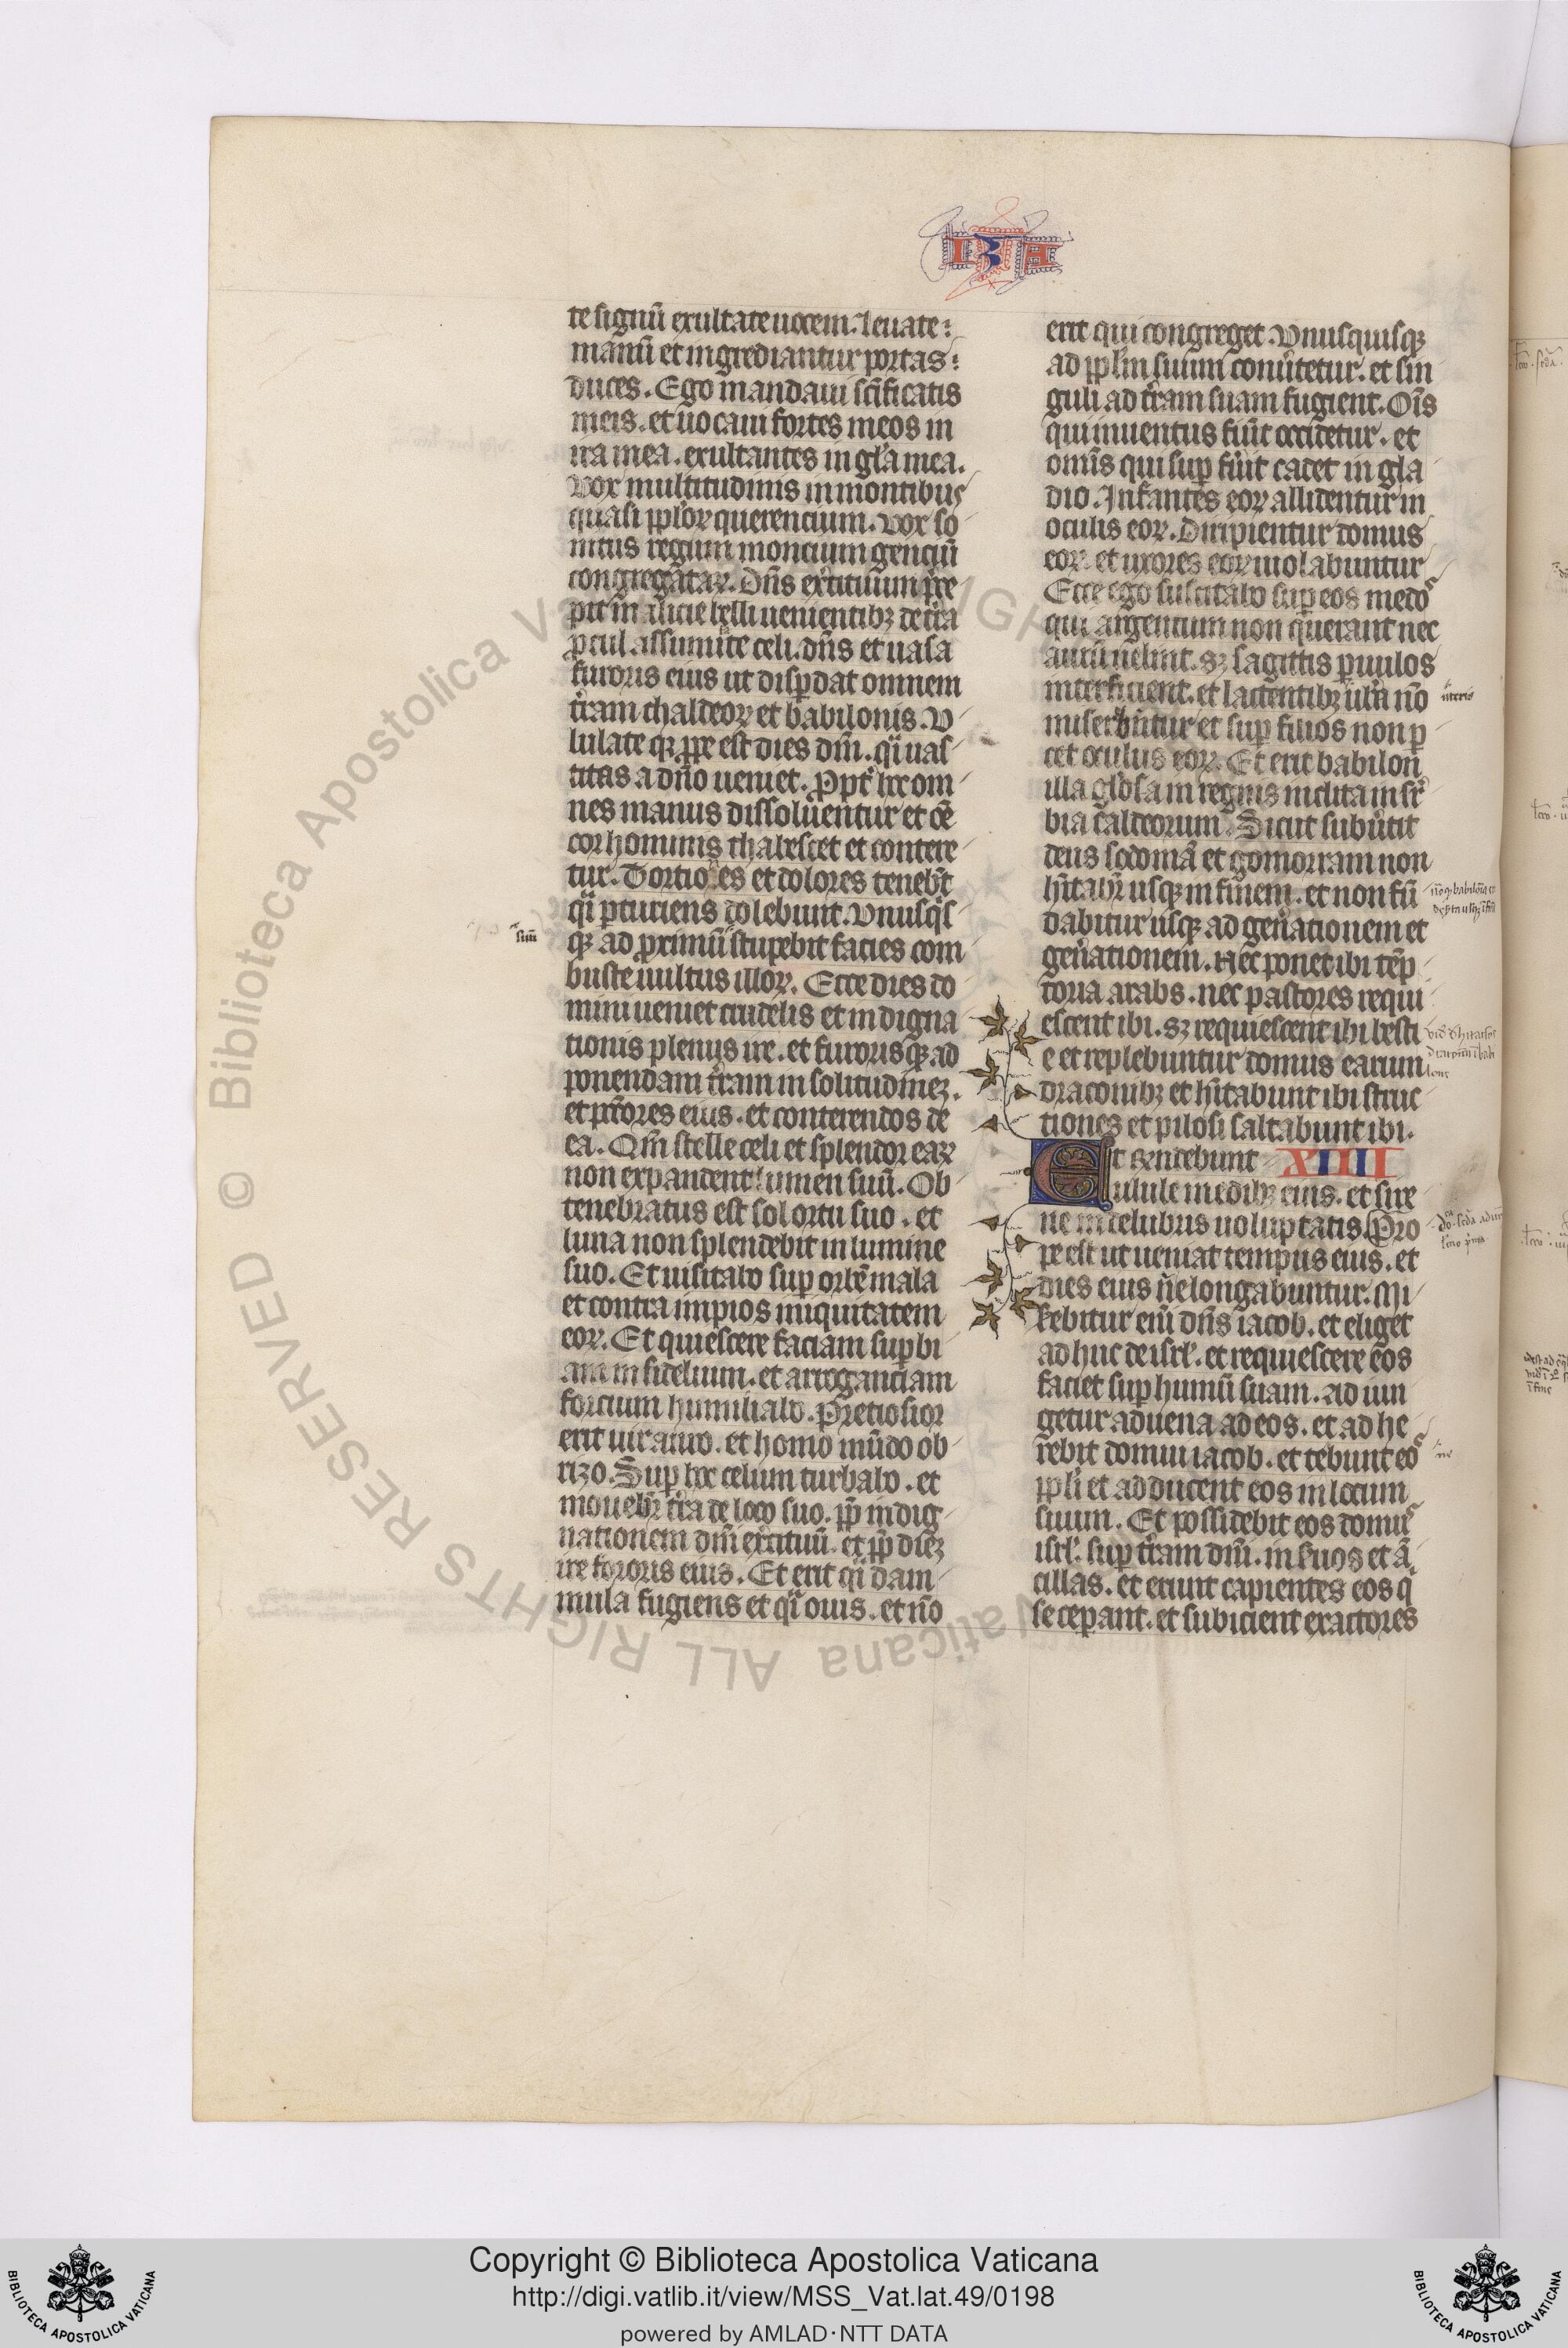 IZA
te signū exultate uocem. leuate:
manū et ingrediantur portas:
duces. Ego mandaui sc̄ificatis
meis. et uocaui fortes meos in
ira mea. exultantes in gl̄a mea.
Vox multitudinis in montibus
quasi ppl̄oꝝ querencium. vox so
nitus regum moncium genciū
congregataꝝ. Dn̄s exercituum p̄ce
pit militie belli uenientibꝫ de tr̄a
ꝓcul. a ssumite celi. dn̄s et uasa
furoris eius ut disꝑdat omnem
tr̄am chaldeoꝝ et babilonis. V
lulate qꝫ ꝓpe est dies dn̄i. q̄i uas
titas a dn̄o ueniet. Ꝓpt̄ hoc om
nes manus dissoluentur et om̄e
cor hominis thabescet et contere
tur. Tortiones et dolores tenebūt
q̄i ꝑturiens dolebunt. Vnusq̄s
qꝫ ad ꝓximū stupebit facies com
buste uultus illoꝝ. Ecce dies do
suū
mini ueniet crudelis et indigna
tionis plenus ire. et furorisqꝫ ad
ponendam tr̄am in solitudineꝫ.
et pc̄tores eius. et conterendos de
ea. Qm̄ stelle celi et splendor eaꝝ
non expandent lumen suū. Ob
tenebratus est sol ortu suo. et
luna non splendebit in lumine
suo. Et uisitabo suꝑ orbē mala
et contra impios iniquitatem
eoꝝ. Et quiescere faciam suꝑbi
am infidelium. et arroganciam
forcium humiliabo. Pretiosior
erit uir auro. et homo mūdo ob
rizo. Suꝑ hoc celum turbabo. et
mouebit̄ tr̄a de loco suo. ꝓp̄ indig
nationem dn̄i exercituū. et ꝓp̄ dieꝫ
ire fororis eius. Et erit q̄i dam
mula fugiens et q̄i ouis. et nō
erit qui congreget. Vnusquisqꝫ
ad ppl̄m suum conuertetur. et sin
guli ad tr̄am suam fugient. Om̄s
qui inuentus fūit occidetur. et
omīs qui suꝑ fūit cadet in gla
dio. Infantes eoꝝ allidentur in
oculis eoꝝ. Diripientur domus
eoꝝ. et uxores eoꝝ uiolabuntur
Ecce ego suscitabo suꝑ eos medos
qui argentum non querant nec
aurū uelint. sꝫ sagittis ꝑuulos
interficient. et lactentibꝫ ut̄i nō
uteris
miserebuntur et suꝑ filios non ꝑ
cet oculus eoꝝ. Et erit babilon
illa gl̄osa in regnis inclita in suꝑ
bia caldeorum. Sicut subūtit
deus sodomā et gomorram non
hītabit̄ usqꝫ in finem. et non fū
dabitur usqꝫ ad gen̄ationem et
gen̄ationem. Nec ponet ibi tēp
toria arabs. nec pastores requi
escent ibi. sꝫ requiescent ibi besti
e et replebuntur domus earum
draconibꝫ et hītabunt ibi struc
tiones et pilosi saltabunt ibi.
Et respondebunt XIIII
ulule in edibꝫ eius. et sire
ne in delubris uoluptatis. Pro
pe est ut ueniat tempus eius. et
dies eius n̄ elongabuntur. Mi
serebitur eni dn̄s iacob. et eliget
ad huc de isrl̄. et requiescere eos
faciet suꝑ humū suam. ad iun
getur aduena ad eos. et ad he
rebit domui iacob. et tebunt eos
ne
ppl̄i et adducent eos in locum
suum. Et possidebit eos domus
isrl̄. suꝑ tr̄am dn̄i. in suos et ā
cillas. et erunt capientes eos q̄
se ceꝑant. et subicient exactores
© Biblioteca Apostolica Vaticana ALL RIGHTS RESERVED
Copyright © Biblioteca Apostolica Vaticana
http://digi.vatlib.it/view/MSS_Vat.lat.49/0198
powered by AMLAD·NTT DATA
BIBLIOTECA APOSTOLICA VATICANA
BIBLIOTECA APOSTOLICA VATICANA